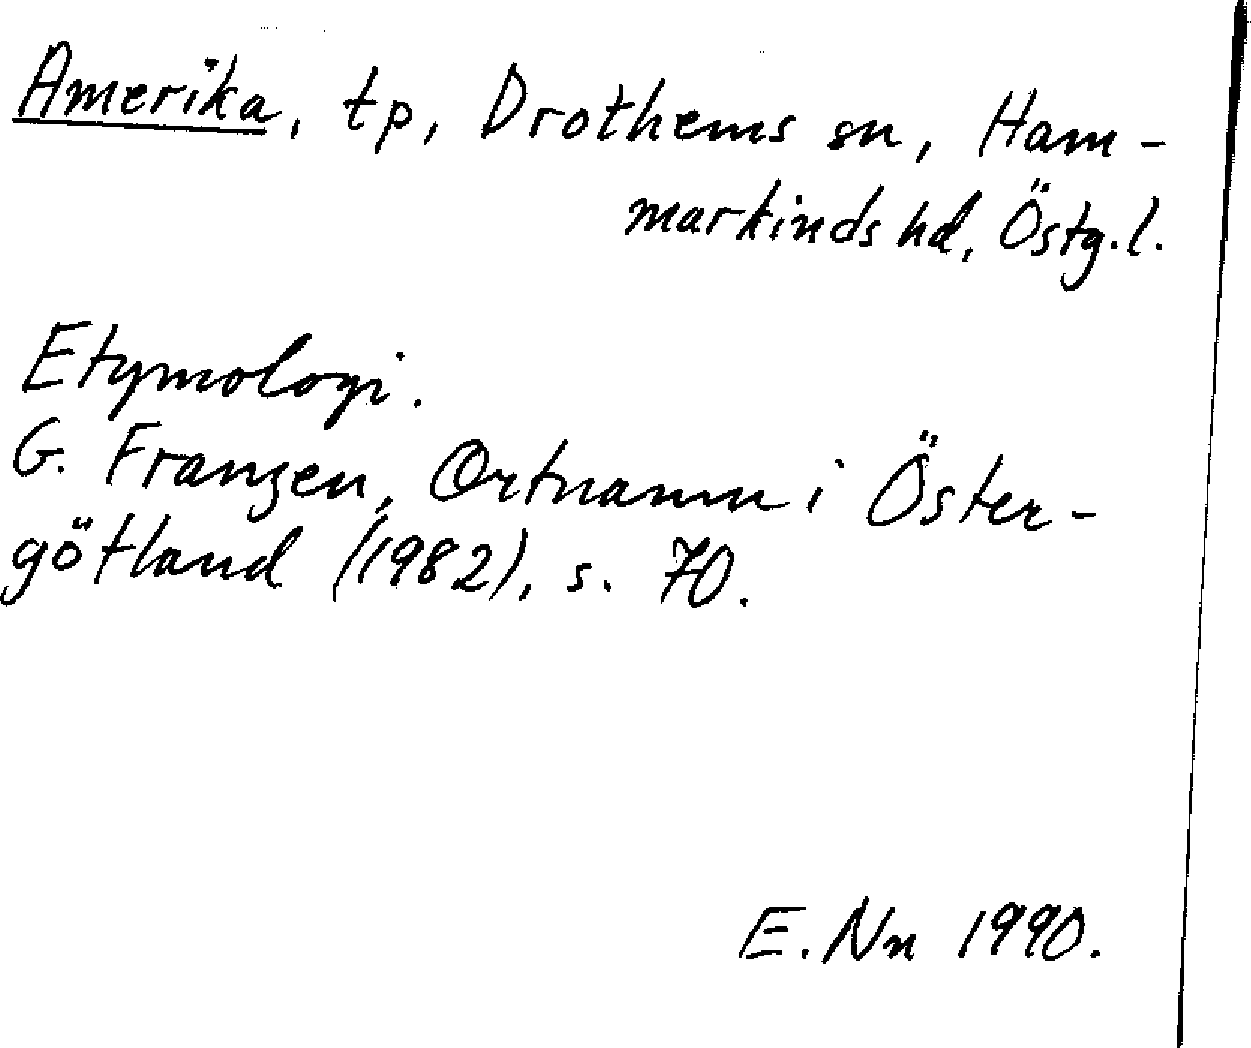 Amerika, tp, Drothems sn, Ham-
markinds hd, Östg.l.
Etymologi.
G. Franzen, Ortnamn i Öster-
götland (1982), s. 70.
E. Nn 1990.